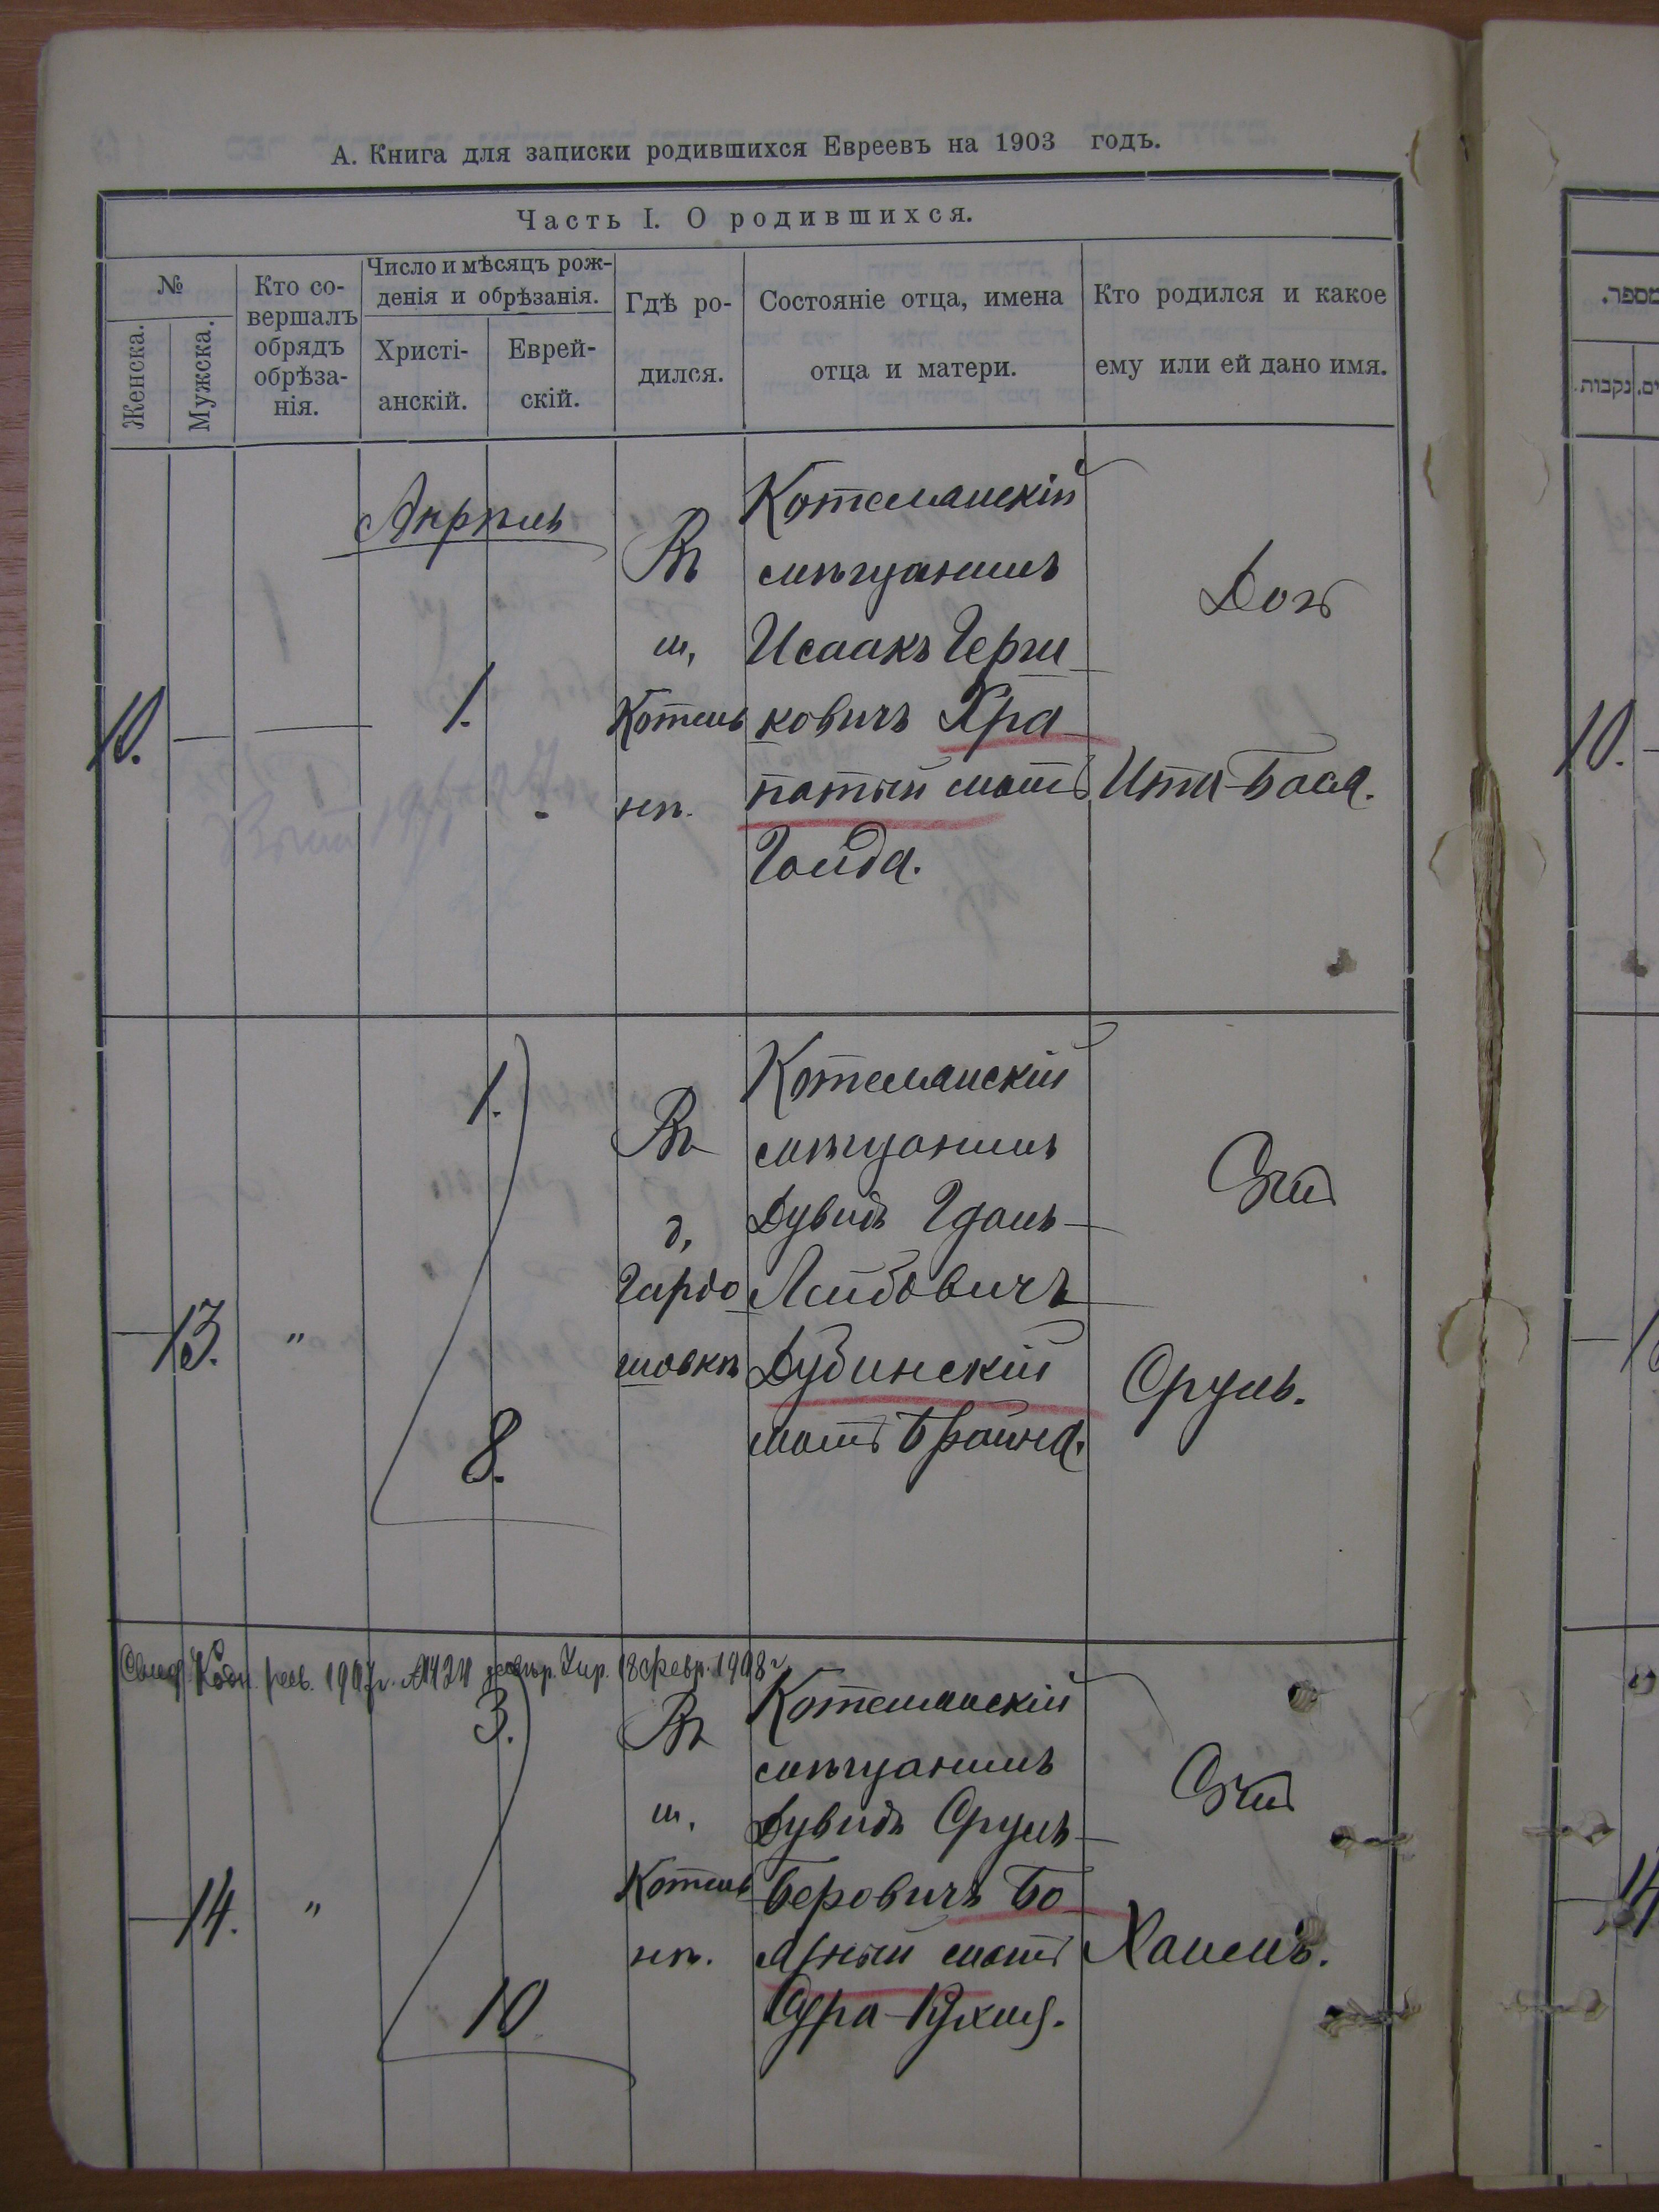 А. Книга для записки родившихся Евреевъ на 1903 годъ.
Часть I. О родившихся.
№
Женска.
Мужска.
Кто со-
вершалъ
обрядъ
обрѣза-
нія.
Число и мѣсяцъ рож-
денія и обрѣзанія.
Христі-
анскій.
Еврей-
скій.
Гдѣ ро-
дился.
Состояніе отца, имена
отца и матери.
Кто родился и какое
ему или ей дано имя.
10.
—
—
Апрѣль
1.
Въ
м.
Котель
нѣ.
Котельанскій
мѣщанинъ
Исаакъ Герш
ковичъ Хра
патый мать
Гольда.
Доч
Ита-Бася.
—
13.
"
1.
8.
Въ
д.
Гардо
шовкѣ
Котельанскій
мѣщанинъ
Дувидъ Гдаль
Лейбовичъ
Дубинскій
мать Брайна.
Сын
Сруль.
1907г. №424 18 февр. 1908г
—
14.
"
3.
10
Въ
м.
Котель
нѣ.
Котельанскій
мѣщанинъ
Дувидъ Сруль
Беровичъ Бо
ярный мать
Сура-Рухля.
Сын
Хаимъ.
מספר.
נקבות
10.
14